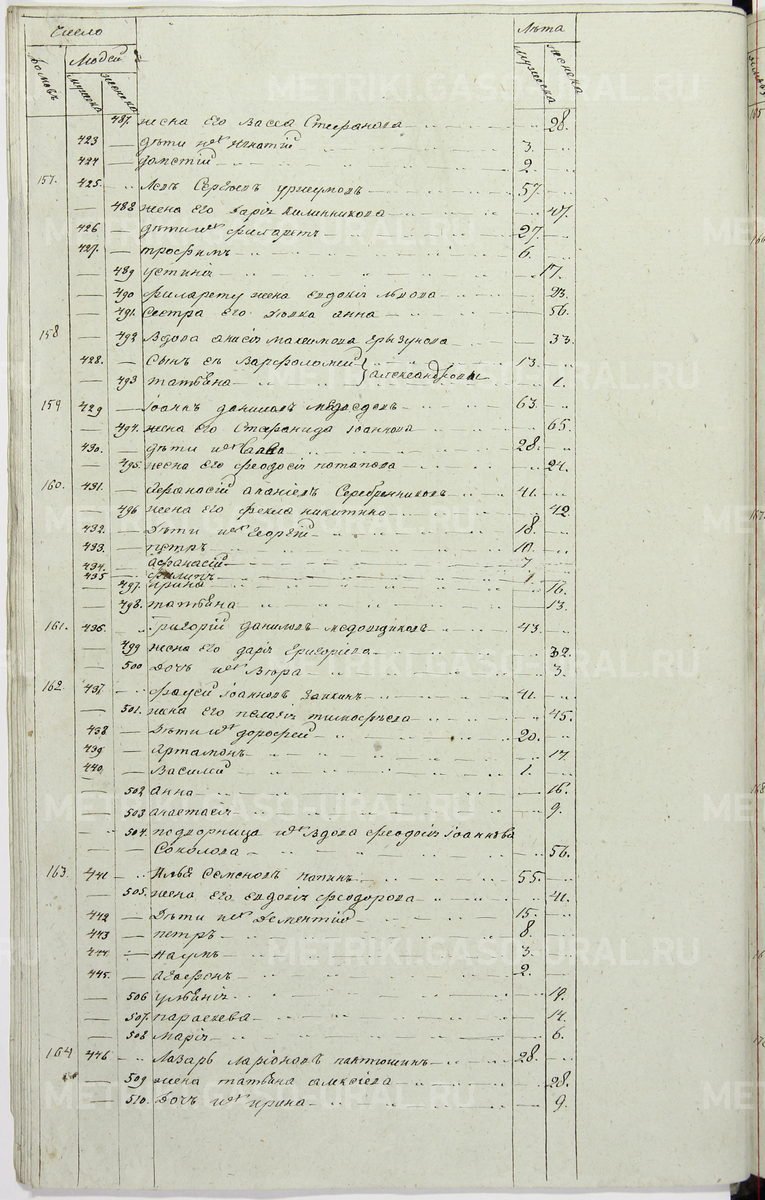 Число Лѣта
Домовъ Людей мужеска женска мужеска женска
487. жена его Васса Стефанова 28.
423 дѣти ихъ Игнатій 3.
424 дометій 2
157. 425. Левъ Сергѣевъ 57.
488 жена его дарія 47.
426 дѣти ихъ филаретъ 27.
427. трофимъ 6.
489 устинія 17.
490 филарету жена евдокія львова 23.
491. сестра его дѣвка анна 56.
158 492 вдова анисія максимова 33
428. сынъ ея варфоломей 13.
493 татьяна } александровы 1.
159 429 Іоаннъ даниловъ 63
494. жена его Стефанида Іоаннова 65.
430. дѣти ихъ Савва 28.
495. жена его феодосія потапова 24.
160. 431. Афанасій ананіевъ Серебренниковъ 41.
496 жена его фекла никитина 42
432. дѣти ихъ Георгій 18.
433. петръ 10.
434. афанасій 7
435 филипъ 1.
497. ирина 16.
498. татьяна 13.
161. 436. Григорій даниловъ 43.
499 жена его дарія Григорьева 32.
500 дочь ихъ 3.
162. 437 фадей Іоанновъ Заикинъ 41.
501. жена его пелагія тимофѣева 45.
438 дѣти ихъ дорофей 20.
439 Артамонъ 17.
440. Василій 1.
502 анна 16.
503 анастасія 9.
504. подворница ихъ вдова феодосія Іоаннова
Соколова 56.
163. 441 Илья Семеновъ папинъ 55.
505. жена его евдокія феодорова 41.
442 дѣти ихъ дементій 15.
443 петръ 8.
444. наумъ 3.
445. агафонъ 2.
506 ульянія 19.
507. параскева 14.
508 марія 6.
164 446 Лазарь Ларіоновъ пактюшинъ 28.
509 жена татьяна алексіева 28.
510. дочь ихъ ирина 9.
METRIKI.GASURAL.RU